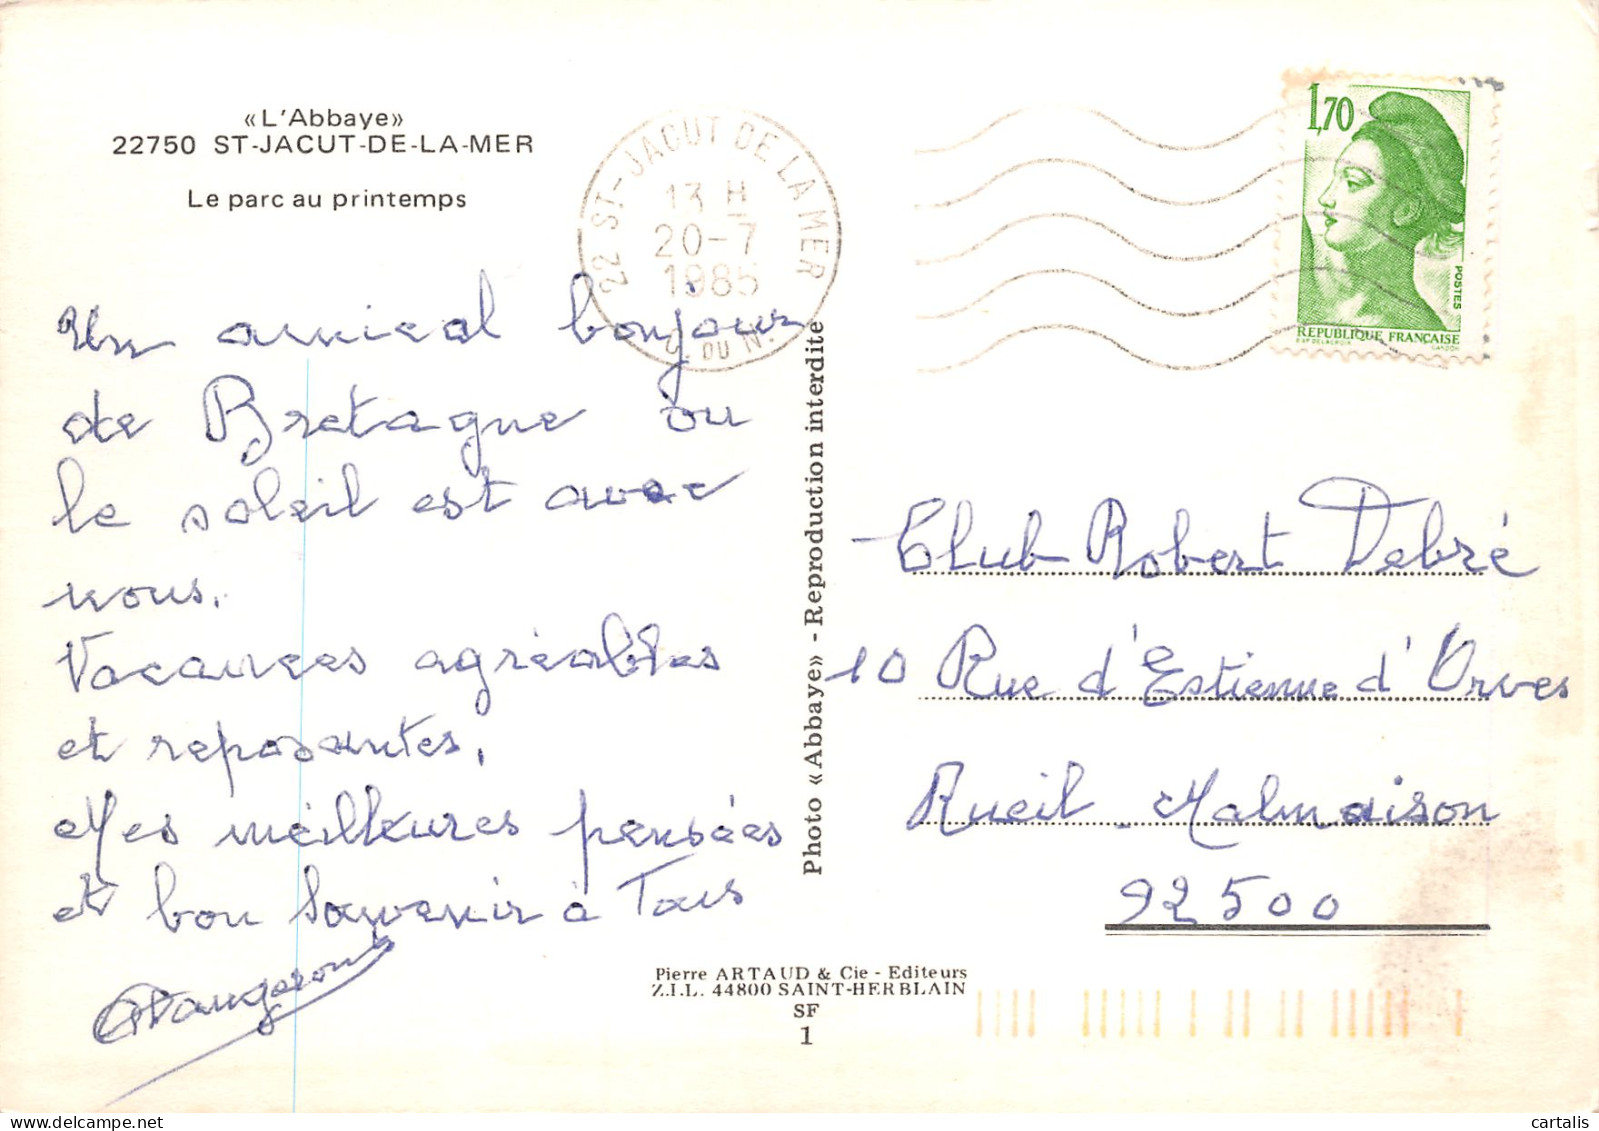 «L'Abbaye»
22750 ST-JACUT-DE-LA-MER
Le parc au printemps
22 ST-JACUT DE LA MER
13 H
20-7
1985
C. DU N.
1,70
POSTES
REPUBLIQUE FRANÇAISE
D'AP. DELACROIX GANDON
Un amical bonjour
de Bretagne ou
le soleil est avec
nous.
Vacances agréables
et reposantes.
Mes meilleures pensées
et bon souvenir à Tous
Photo «Abbaye» - Reproduction interdite
Club Robert Debré
10 Rue d'Estienne d'Orves
Rueil-Malmaison
92500
Pierre ARTAUD & Cie - Editeurs
Z.I.L. 44800 SAINT-HERBLAIN
SF
1
cartalis